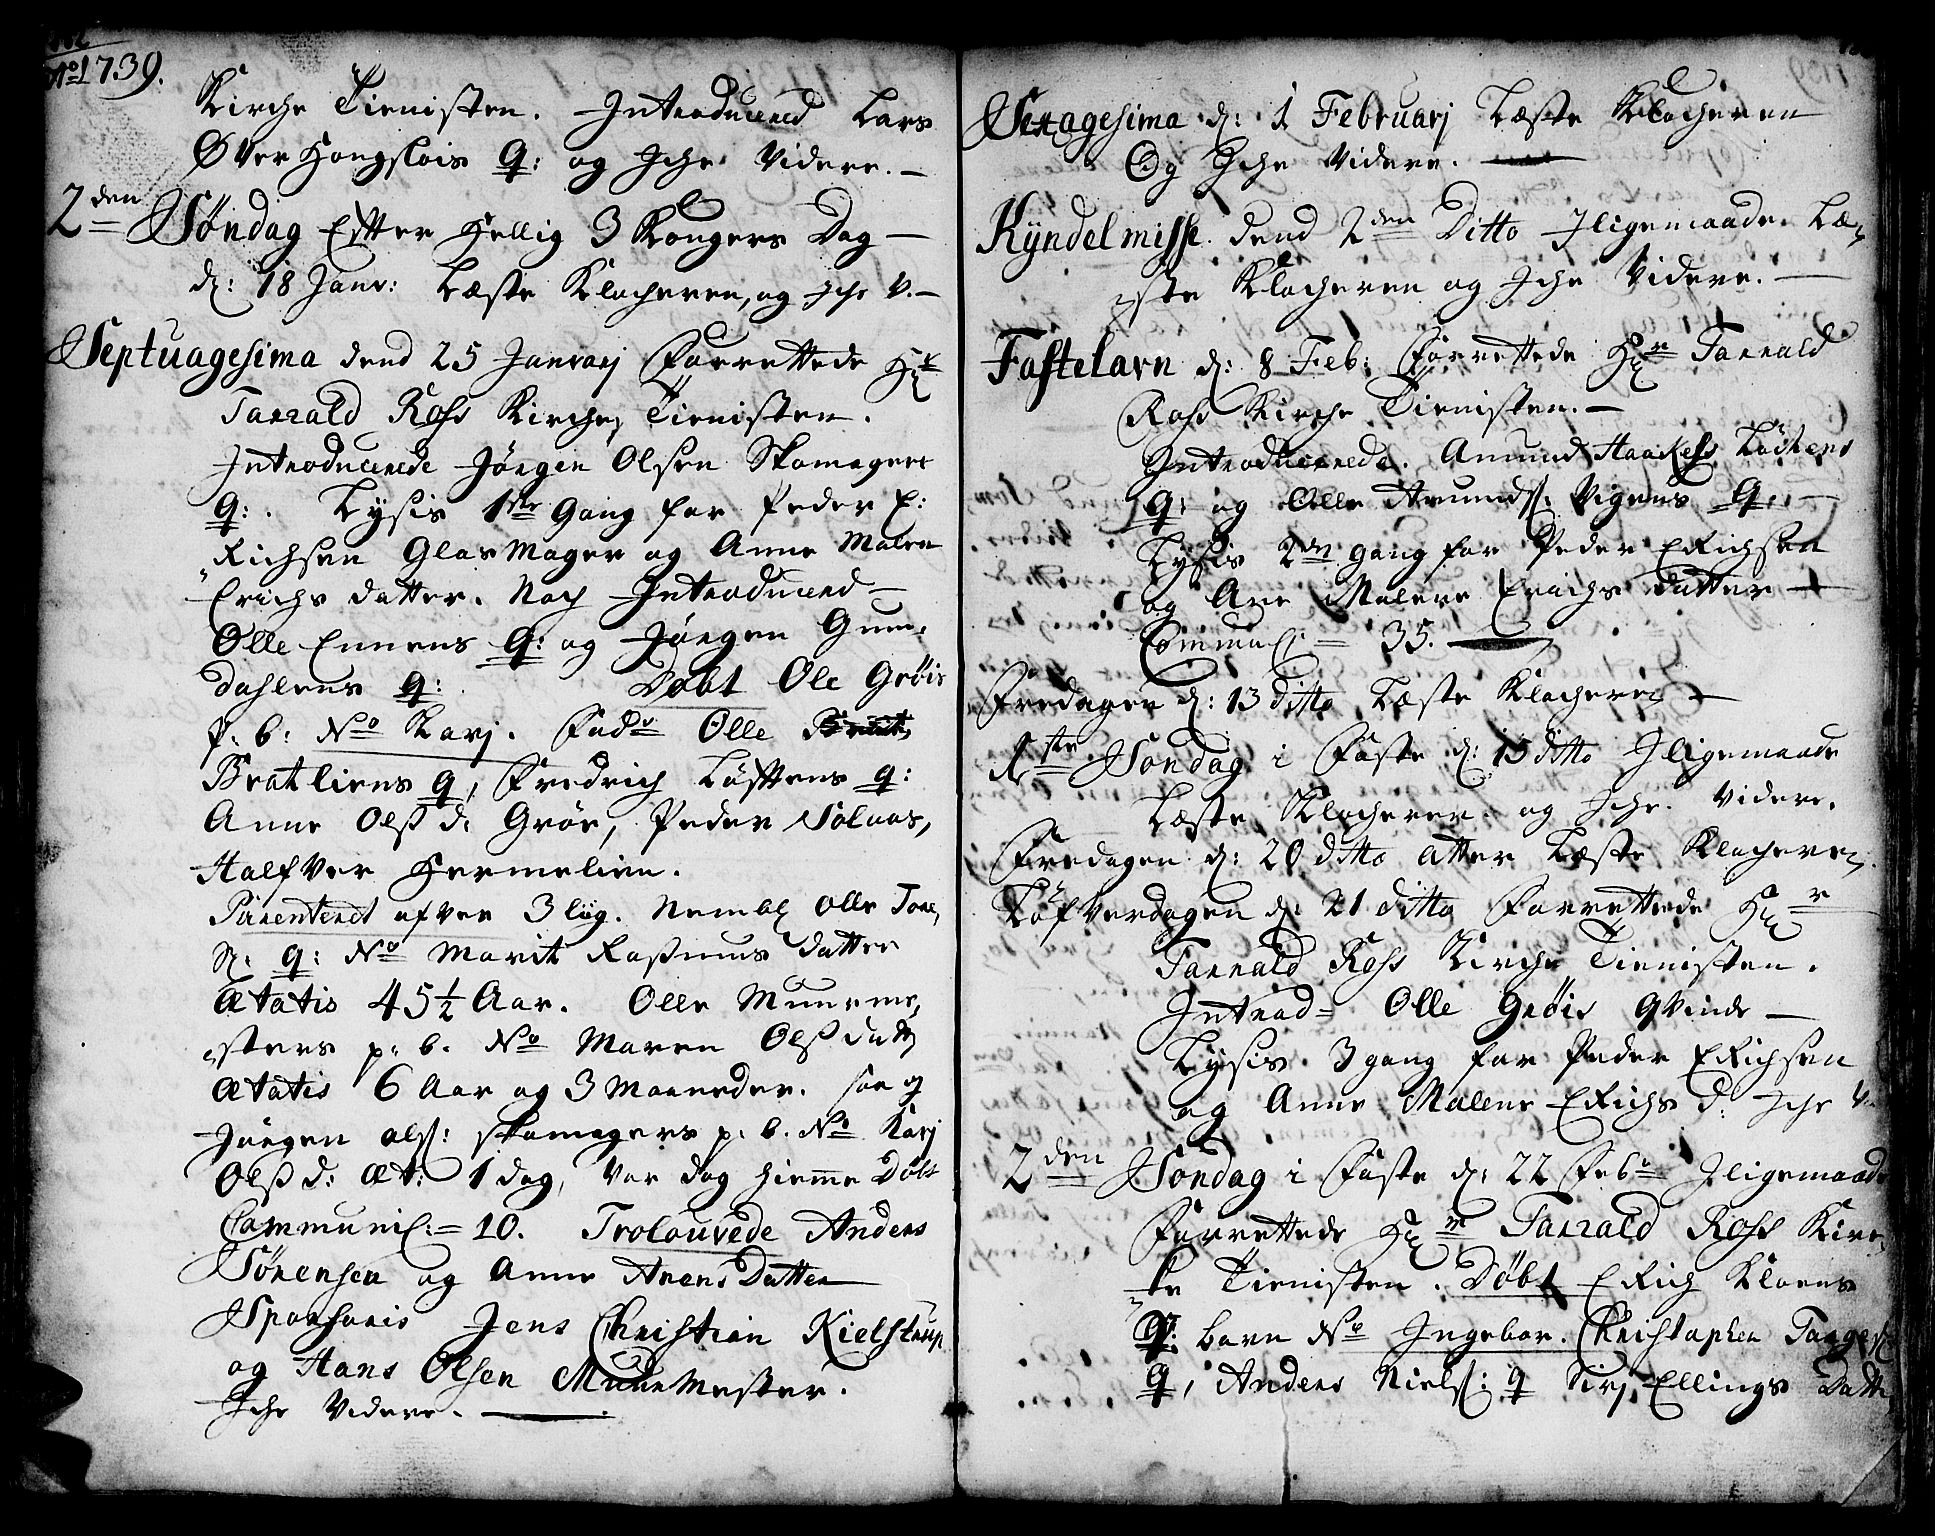 Aō 1739.
Kirche Tienisten. Introducered Lars
Øver Hongslois Q: og Iche Videre. —
2den Søndag Efter Hellig 3 Kongers Dag —
d: 18 Janv: Læste Klocheren, og Iche V. —
Septuagesima dend 25 Januarj Forrettede Hr
Tarrald Ross Kirche Tienisten.
Introducerede Jörgen Olsen Skomagers
Q: . Lysis 1ste Gang for Peder E:
Richsen Glas Mager og Anne Malen
Erichs datter. Noch Introducered —
Olle Ennens Q: og Jörgen Gun-
dahlens Q: Döbt Ole Gröis
p. b: No Karj. Fadr Olle
Bratliens Q, Fredrich Löfttens Q:
Anne Olß d: Gröe, Peder Solaas,
Halfver Hermelien.
Parenteret ofver 3 liig. Nembl Olle Jon-
S: Q: No Marit Rasmus datter
Ætatis 45½ Aar. Olle Muurme-
sters p. b. No Maren Olß datt
Ætatis 6 Aar og 3 Maaneder. saa og
Jörgen ols: skomagers p. b. No Karj
Olß d: Æt: 1 dag, Var dog hiemme Döbt
Communic: = 10. Trolouvede Anders
Sörensen og Anne Arens Datter
Sponsoris Jens Christian Kielstrup
og Hans Olsen Muur Mester.
Iche Videre. —
Sexagesima d: 1 Februarj Læste Klocheren
Og Iche Videre. —
Kÿndelmisse dend 2den Ditto Iligemaade Læ-
ste Klocheren og Iche Videre. —
Fastelavn d: 8 Feb: Forrettede Hr Tarrald
Ross Kirche Tienisten. —
Introducerede Amund Haakens Löchens
Q: og Olle Amunds: Vigens Q: —
Lysis 2den gang for Peder ERichsen
og Ane Malene Erichs datter —
Communi: = 35. —
Fredagen d: 13 ditto Læste Klocheren —
1ste Söndag i Faste d: 15 ditto Iligemaade
Læste Klocheren og Iche Videre.
Fredagen d: 20 ditto atter Læste Klocheren.
Löfverdagen d: 21 ditto Forrettede Hr
Tarrald Ross Kirche Tienisten.
Introd= Olle Gröis qvinde —
Lysis 3 gang for Peder ERichsen
og Anne Malene ERichs d: Iche V.
2den Söndag i Faste d: 22 Febr Iligemaade
Forrettede Hr Tarrald Ross Kir-
ke Tienisten. Döbt ERich Kloens
Q: barn No Ingebor. Christopher
Q, Anders Niels: Q Sirj Ellings Datt